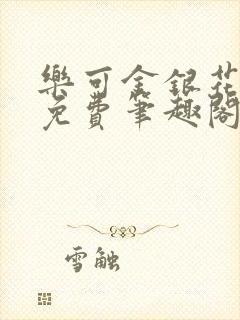 樂可金銀花
免費筆趣閣
雪触